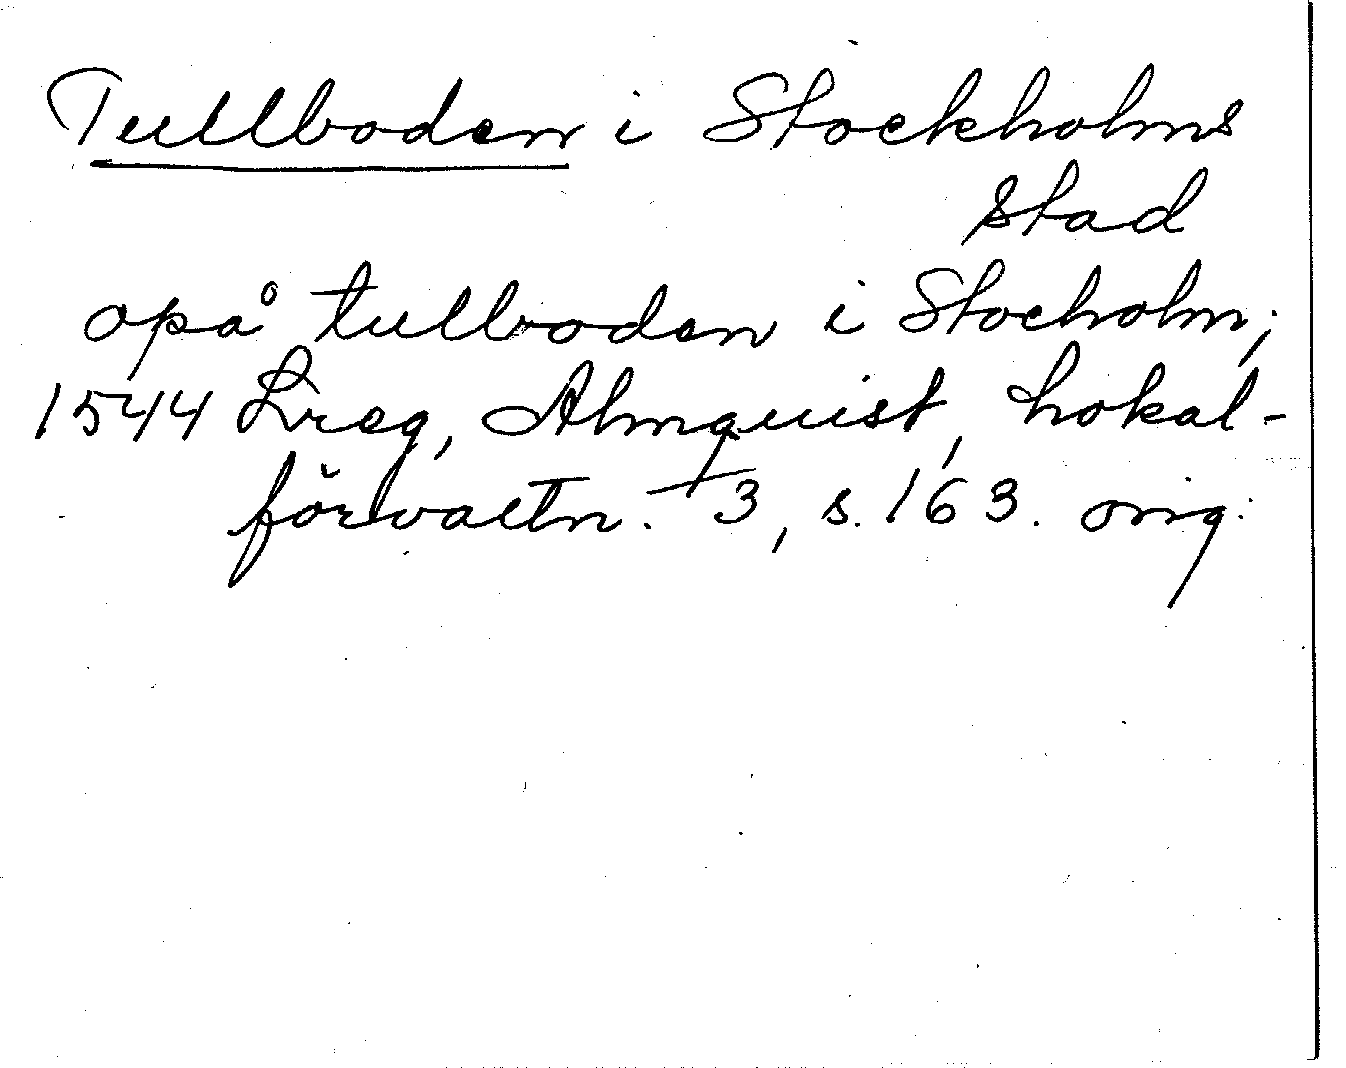 Tullboden i Stockholms
stad
opå tulboden i Stocholm;
1544 Lreg, Almquist, Lokal-
förvaltn. 3, s. 163. orig.